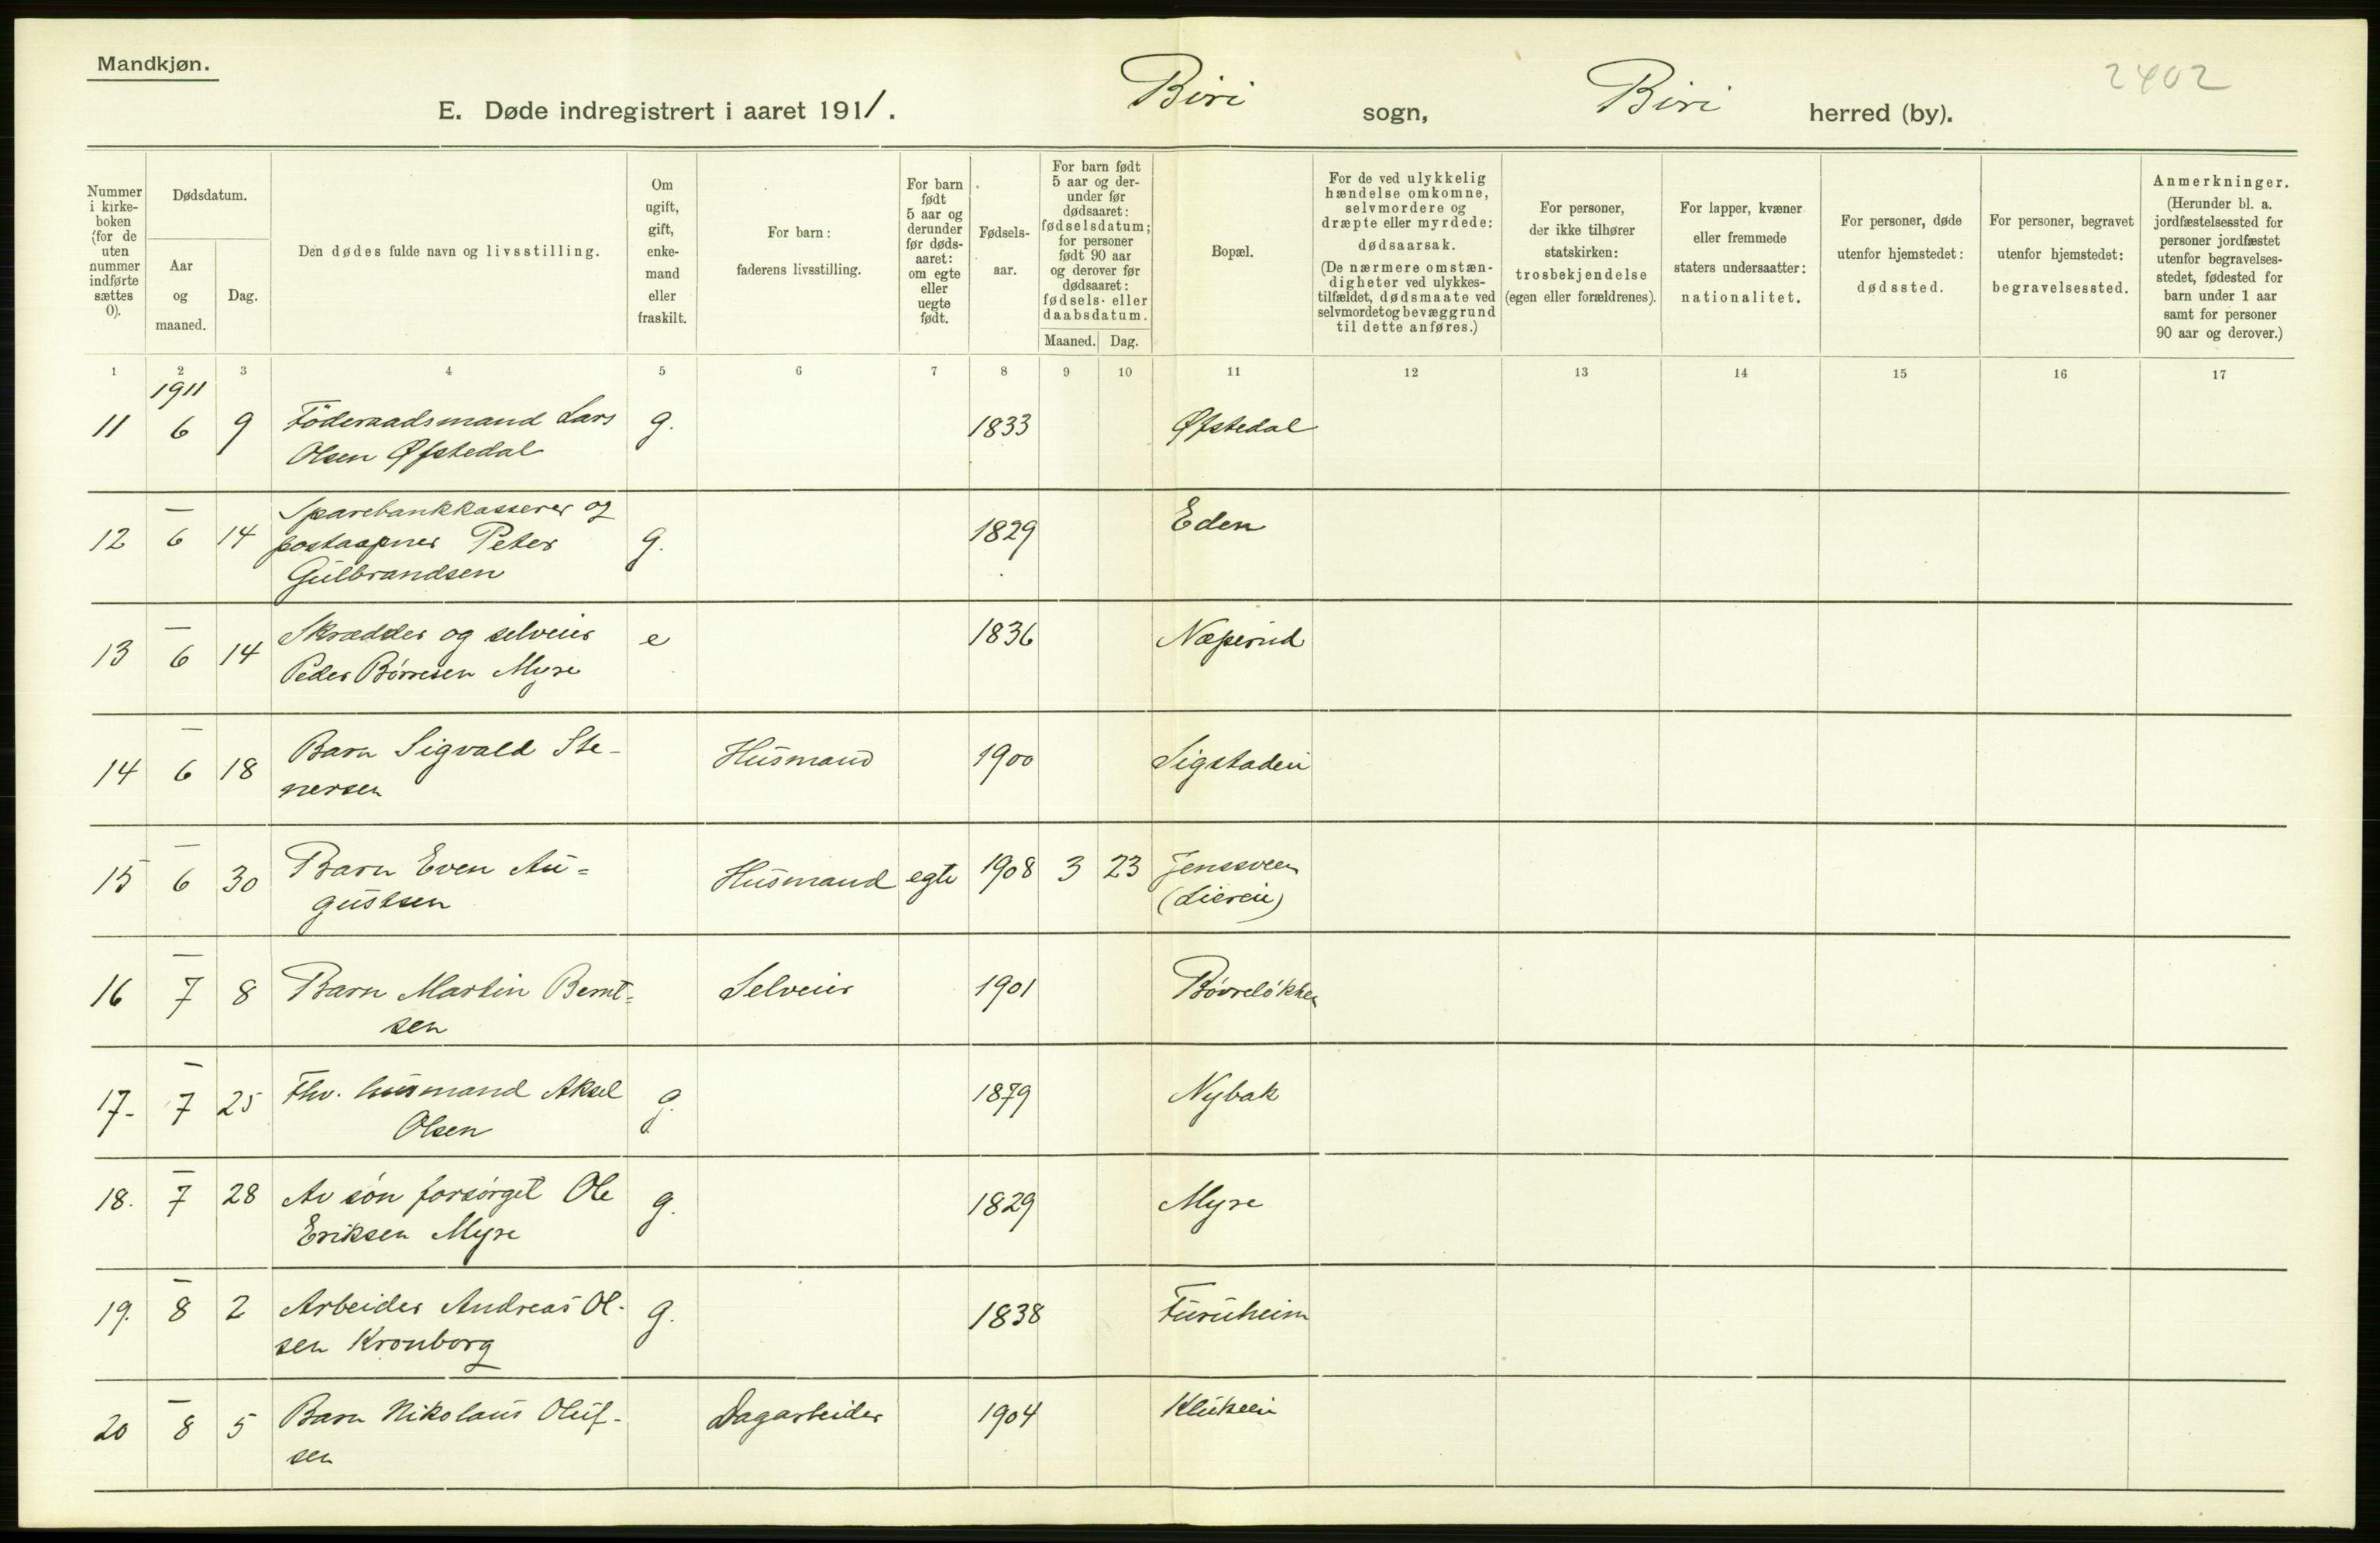 Mandkjøn.
2402
E. Døde indregistrert i aaret 1911. Biri sogn, Biri herred (by).
Nummer i kirkeboken (for de uten nummer indførte sættes 0).
Dødsdatum.
Aar og maaned.
Dag.
Den dødes fulde navn og livsstilling.
Om ugift, gift, enkemand eller fraskilt.
For barn: faderens livsstilling.
For barn født 5 aar og derunder før dødsaaret: om egte eller uegte født.
Fødselsaar.
For barn født 5 aar og derunder før dødsaaret: fødselsdatum; for personer født 90 aar og derover før dødsaaret: fødsels- eller daabsdatum.
Maaned. Dag.
Bopæl.
For de ved ulykkelig hændelse omkomne, selvmordere og dræpte eller myrdede: dødsaarsak. (De nærmere omstændigheter ved ulykkestilfældet, dødsmaate ved selvmordet og bevæggrund til dette anføres.)
For personer, der ikke tilhører statskirken: trosbekjendelse (egen eller forældrenes).
For lapper, kvæner eller fremmede staters undersaatter: nationalitet.
For personer, døde utenfor hjemstedet: dødssted.
For personer, begravet utenfor hjemstedet: begravelsessted.
Anmerkninger. (Herunder bl. a. jordfæstelsessted for personer jordfæstet utenfor begravelsesstedet, fødested for barn under 1 aar samt for personer 90 aar og derover.)
1 2 3 4 5 6 7 8 9 10 11 12 13 14 15 16 17
1911
11 6 9 Föderaadsmand Lars g. 1833 Øfstedal
Olsen Øfstedal
— Sparebankkasserer og
12 6 14 postaapner Peter g. 1829 Eden
Gulbrandsen
— Skrædder og selveier e 1836 Næperud
13 6 14 Peder Börresen Myre
— Barn Sigvald Ste-
14 6 18 nersen Husmand 1900 Sigstadei
— Barn Even Au=
15 6 30 gustsen Husmand egte 1908 3 23 Jenssveen
(Liereie)
—
16 7 8 Barn Martin Bernt= Selveier 1901 Bövrelökken
sen
— Fhv. husmand Aksel
17- 7 25 Olsen g. 1879 Nybak
—
18. 7 28 Av sön forsörget Ole g. 1829 Myre
Eriksen Myre
—
19. 8 2 Arbeider Andreas Ol- g. 1838 Furuheim
sen Kronborg
—
20 8 5 Barn Nikolaus Oluf- Dagarbeider 1904
sen